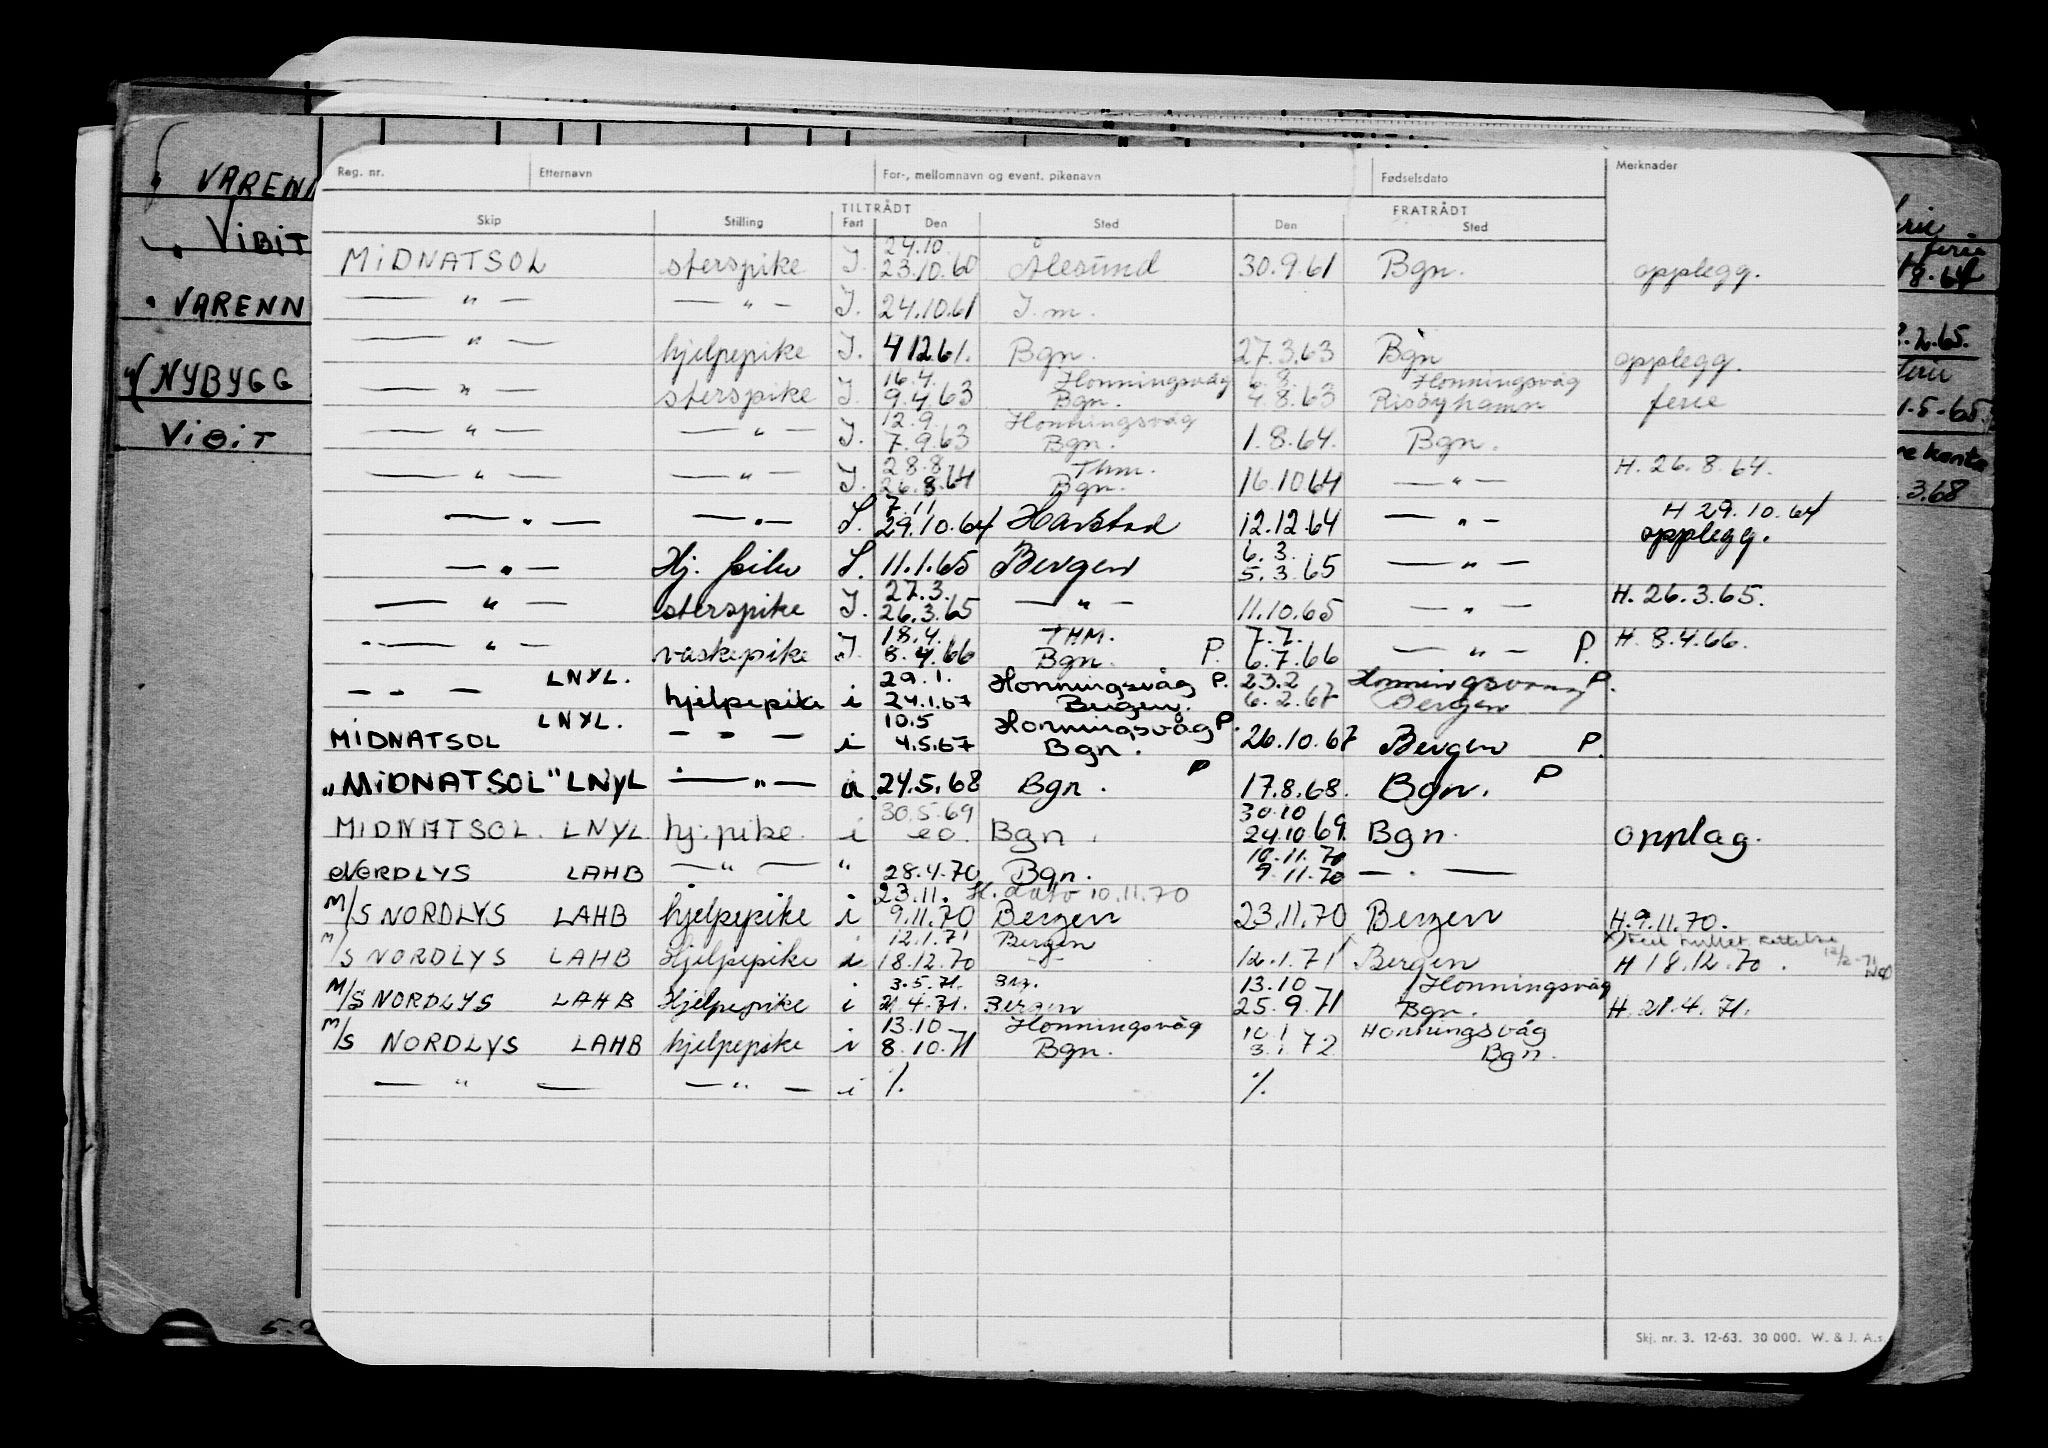 Reg. nr. Etternavn For-, mellomnavn og event. pikenavn Fødselsdato Merknader
TILTRÅDT FRATRÅDT
Skip Stilling Fart Den Sted Den Sted
24.10
MIDNATSOL sterspike I. 23.10.60 Ålesund 30.9.61 Bgn. opplegg.
— " — — " — I. 24.10.61 I. m.
— " — hjelpepike I. 4 12 61. Bgn. 27.3.63 Bgn opplegg.
16.4. Honningsvåg 6.8. Honningsvåg
— " — sterspike I. 9.4.63 Bgn. 4.8.63 Risøyhamn ferie
12.9. Honningsvåg
— " — — " — I. 7.9.63 Bgn. 1.8.64. Bgn.
28.8 Thm. H. 26.8.64.
— " — — " — I. 26.8.64 Bgn. 16.10 64 — " —
7.11 H 29.10.64
— " — — " — I. 29.10.64 Harstad 12.12.64 — " — opplegg.
6.3.
— " — Hj. pike I. 11.1.65 Bergen 5.3.65 — " —
27.3. H. 26.3.65.
— " — sterspike I. 26.3.65 — " — 11.10.65 — " —
18.4. THM. 7.7. H. 8.4.66.
— " — vaskepike I. 8.4.66 Bgn. P. 6.7.66 — " — P.
LNYL. 29.1. Honningsvåg P. 23.2 Honningsvaag P.
— " — hjelpepike i 24.1.67 Bergen. 6.2.67 Bergen
LNYL. 10.5 Honningsvåg P.
MIDNATSOL — " — i 4.5.67 Bgn. 26.10.67 Bergen P.
"MIDNATSOL" LNYL — " — u. 24.5.68 Bgn. P 17.8.68. Bgn. P
30.5.69 30.10
MIDNATSOL. LNYL. hj. pike. i eo. Bgn. 24.10.69. Bgn. opplag.
10.11.70
NORDLYS LAHB — " — " 28.4.70 Bgn. 9.11.70 — . —
23.11. H. dato 10.11.70
M/S NORDLYS LAHB hjelpepike i 9.11.70 Bergen 23.11.70 Bergen H. 9.11.70.
12.1.71 Bergen
M/S NORDLYS LAHB Hjelpepike i 18.12.70 12.1.71 Bergen H 18.12.70.
3.5.71. Brg. 13.10 Honningsvåg
M/S NORDLYS LAHB Hjelpepike i 21.4.71. Bergen 25.9.71 Bgn. H. 21.4.71.
13.10 Honningsvåg 10.1 Honningsvåg
M/S NORDLYS LAHB hjelpepike i 8.10.71 Bgn. 3.1.72 Bgn.
— " — — " — i %. %.
Skj. nr. 3. 12-63. 30 000. W. & J. A.s
VARENN
VIBIT
VARENN
NYBYGG
VIBIT
ferie
8.64
2.65.
1.5-65.
konto
3.68